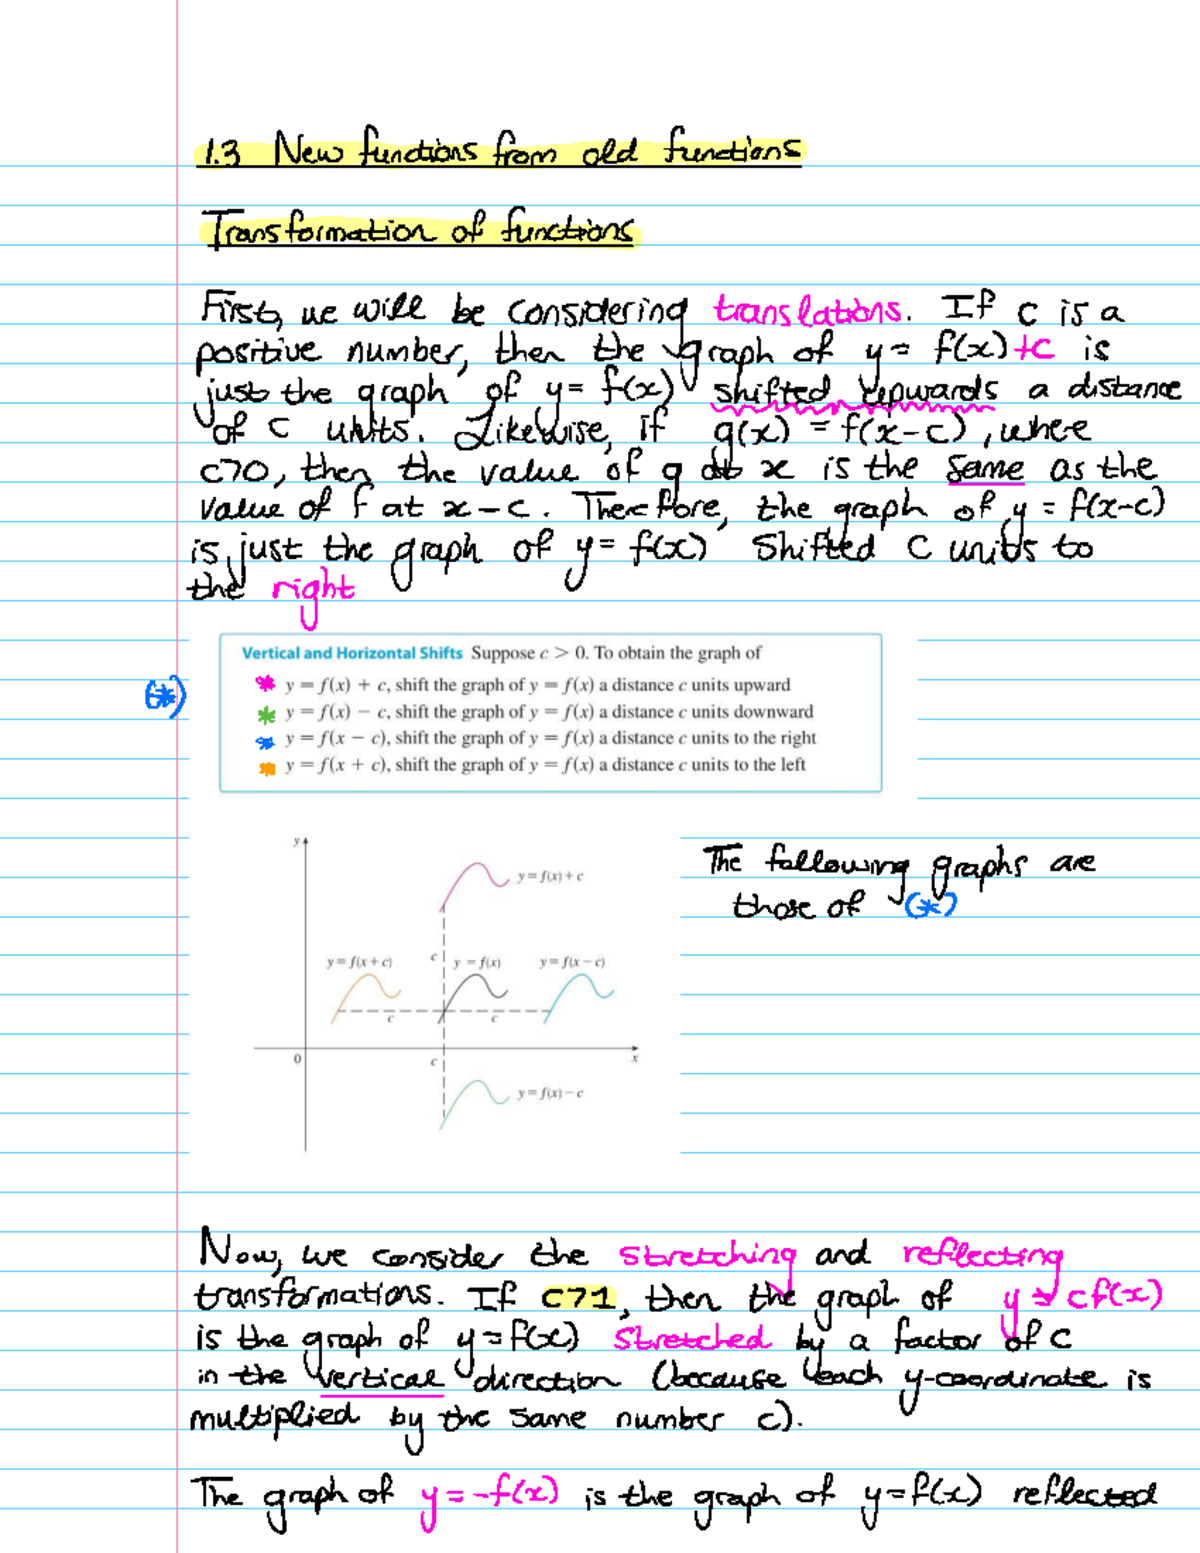 1.3 New functions from old functions
Transformation of functions
First, we will be considering translations. If c is a
positive number, then the graph of y = f(x)+c is
just the graph of y = f(x) shifted upwards a distance
of c units. Likewise, if g(x) = f(x-c), where
c>0, then the value of g at x is the same as the
value of f at x-c. Therefore, the graph of y = f(x-c)
is just the graph of y = f(x) shifted c units to
the right
Vertical and Horizontal Shifts Suppose c > 0. To obtain the graph of
(*)
y = f(x) + c, shift the graph of y = f(x) a distance c units upward
y = f(x) − c, shift the graph of y = f(x) a distance c units downward
y = f(x − c), shift the graph of y = f(x) a distance c units to the right
y = f(x + c), shift the graph of y = f(x) a distance c units to the left
y
y = f(x) + c
The following graphs are
those of (*)
y = f(x + c)
c
y = f(x)
y = f(x − c)
c
c
0
c
x
y = f(x) − c
Now, we consider the stretching and reflecting
transformations. If c>1, then the graph of y = cf(x)
is the graph of y = f(x) stretched by a factor of c
in the vertical direction (because each y-coordinate is
multiplied by the same number c).
The graph of y = -f(x) is the graph of y = f(x) reflected